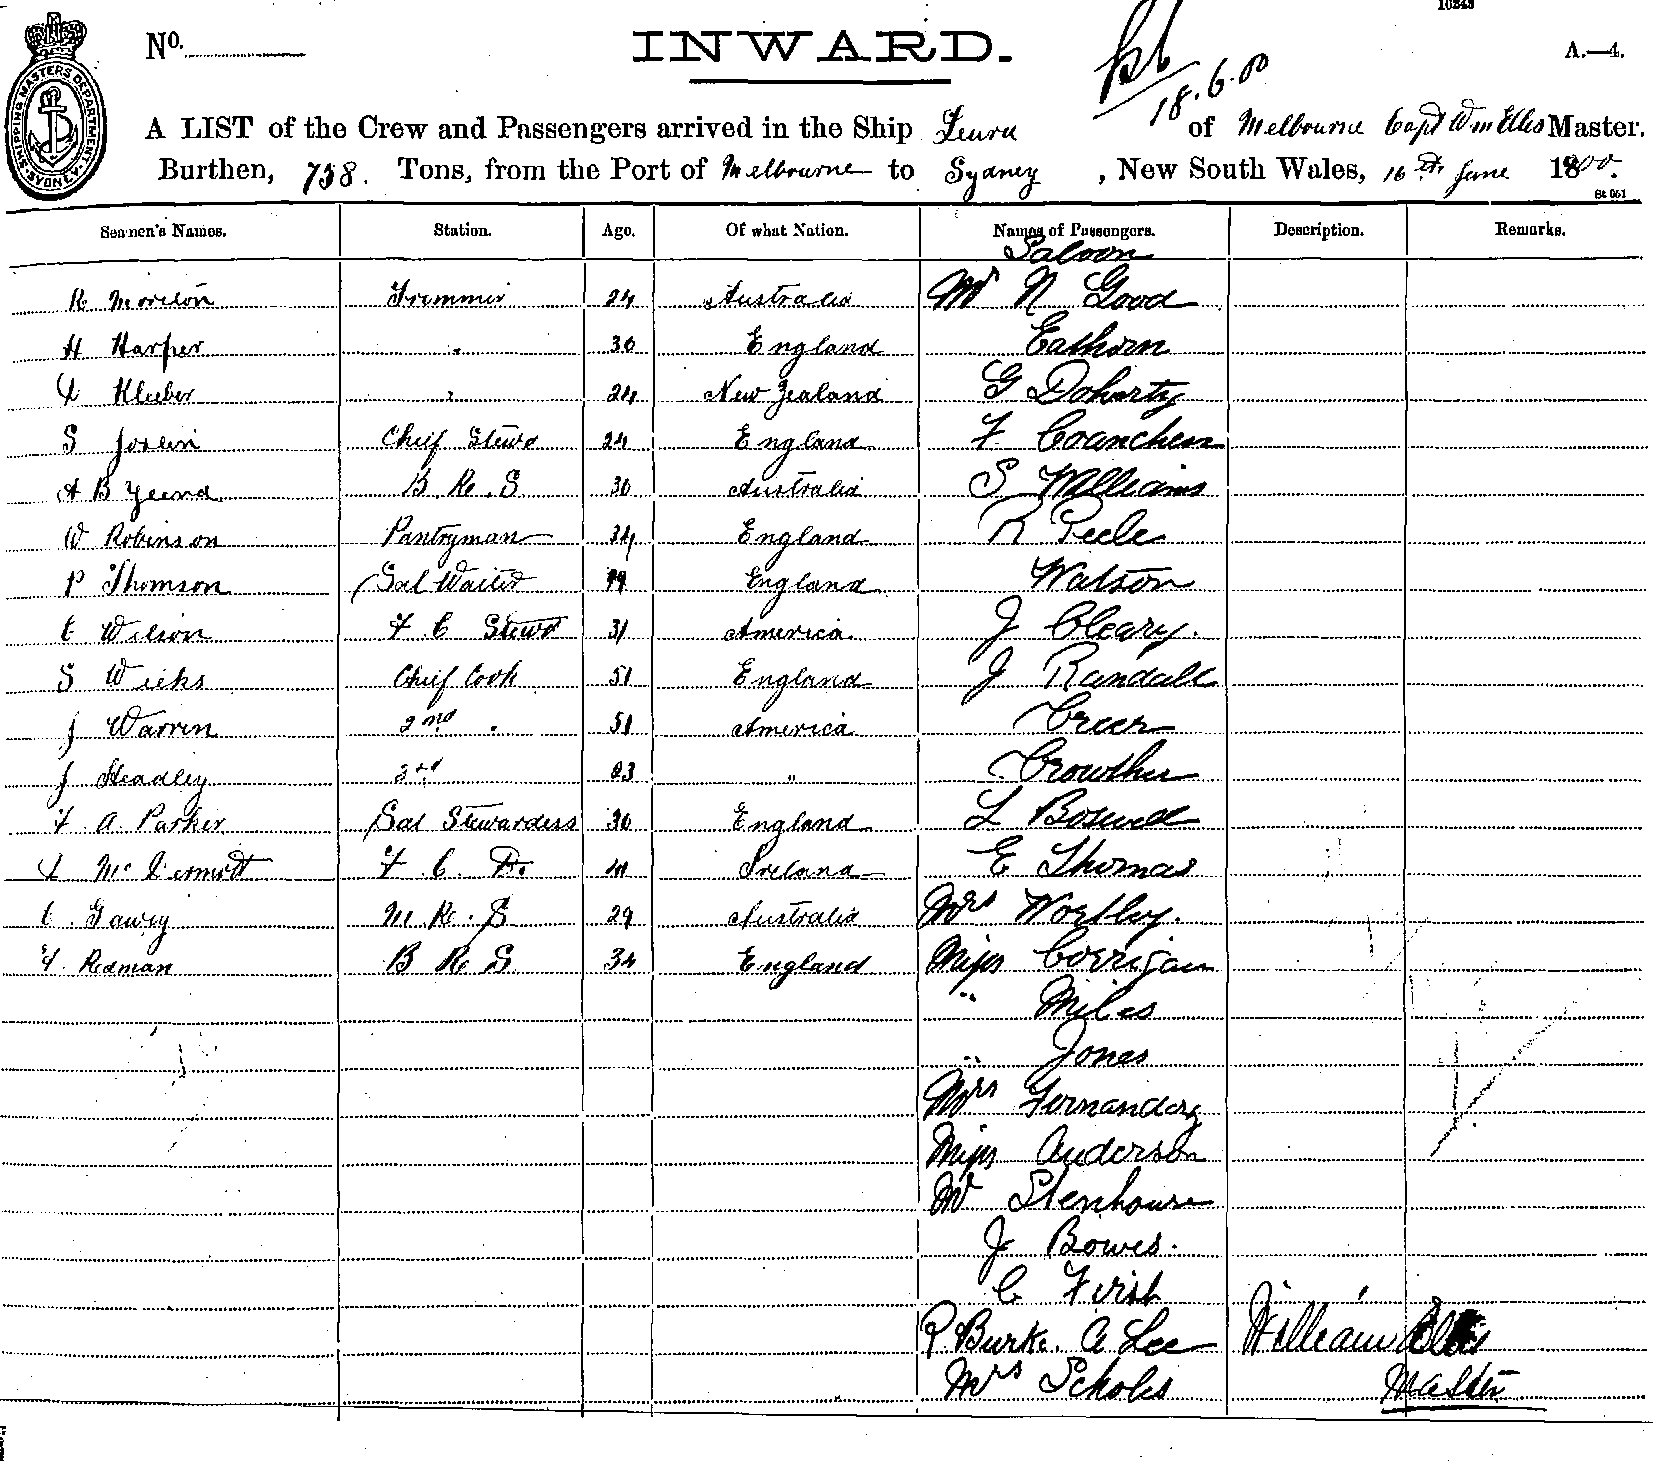 10343
No. INWARD. A.—4.
18.6.00
SHIPPING MASTERS DEPARTMENT SYDNEY
A LIST of the Crew and Passengers arrived in the Ship Leura of Melbourne Capt Wm Ellis Master.
Burthen, 738. Tons, from the Port of Melbourne to Sydney, New South Wales, 16th June 1800.
St 661
Seamen's Names. Station. Age. Of what Nation. Names of Passengers. Description. Remarks.
Saloon
R Morison Trimmer 24 Australia Mr N Good
H Harper " 30 England Eathorn
Kleeber " 24 New Zealand G Doherty
S Joslin Chief Stewd 24 England F
A B Yeend B. R. S 30 Australia S Williams
W Robinson Pantryman 34 England R Peele
P Thomson Sal Waiter 19 England Watson
C Wilson F C Stewd 31 America J Cleary.
S Wicks Chief Cook 51 England J Randall
J Warren 2nd " 51 America Greer
J Headley 3rd 23 " Crowther
F A. Parker Sal Stewardess 30 England L Boswell
McDermott F. C. Do. 40 Ireland E Thomas
C. Gawey M. R. S 29 Australia Mrs Worthy.
F. Redman B R S 34 England Miss Corrigan
" Miles
" Jones
Mrs Fernandez
Miss Anderson
Mr Stenhouse
J Bowes.
C Firth
P. Burke. A Lee William Ellis
Mrs Scholes Master